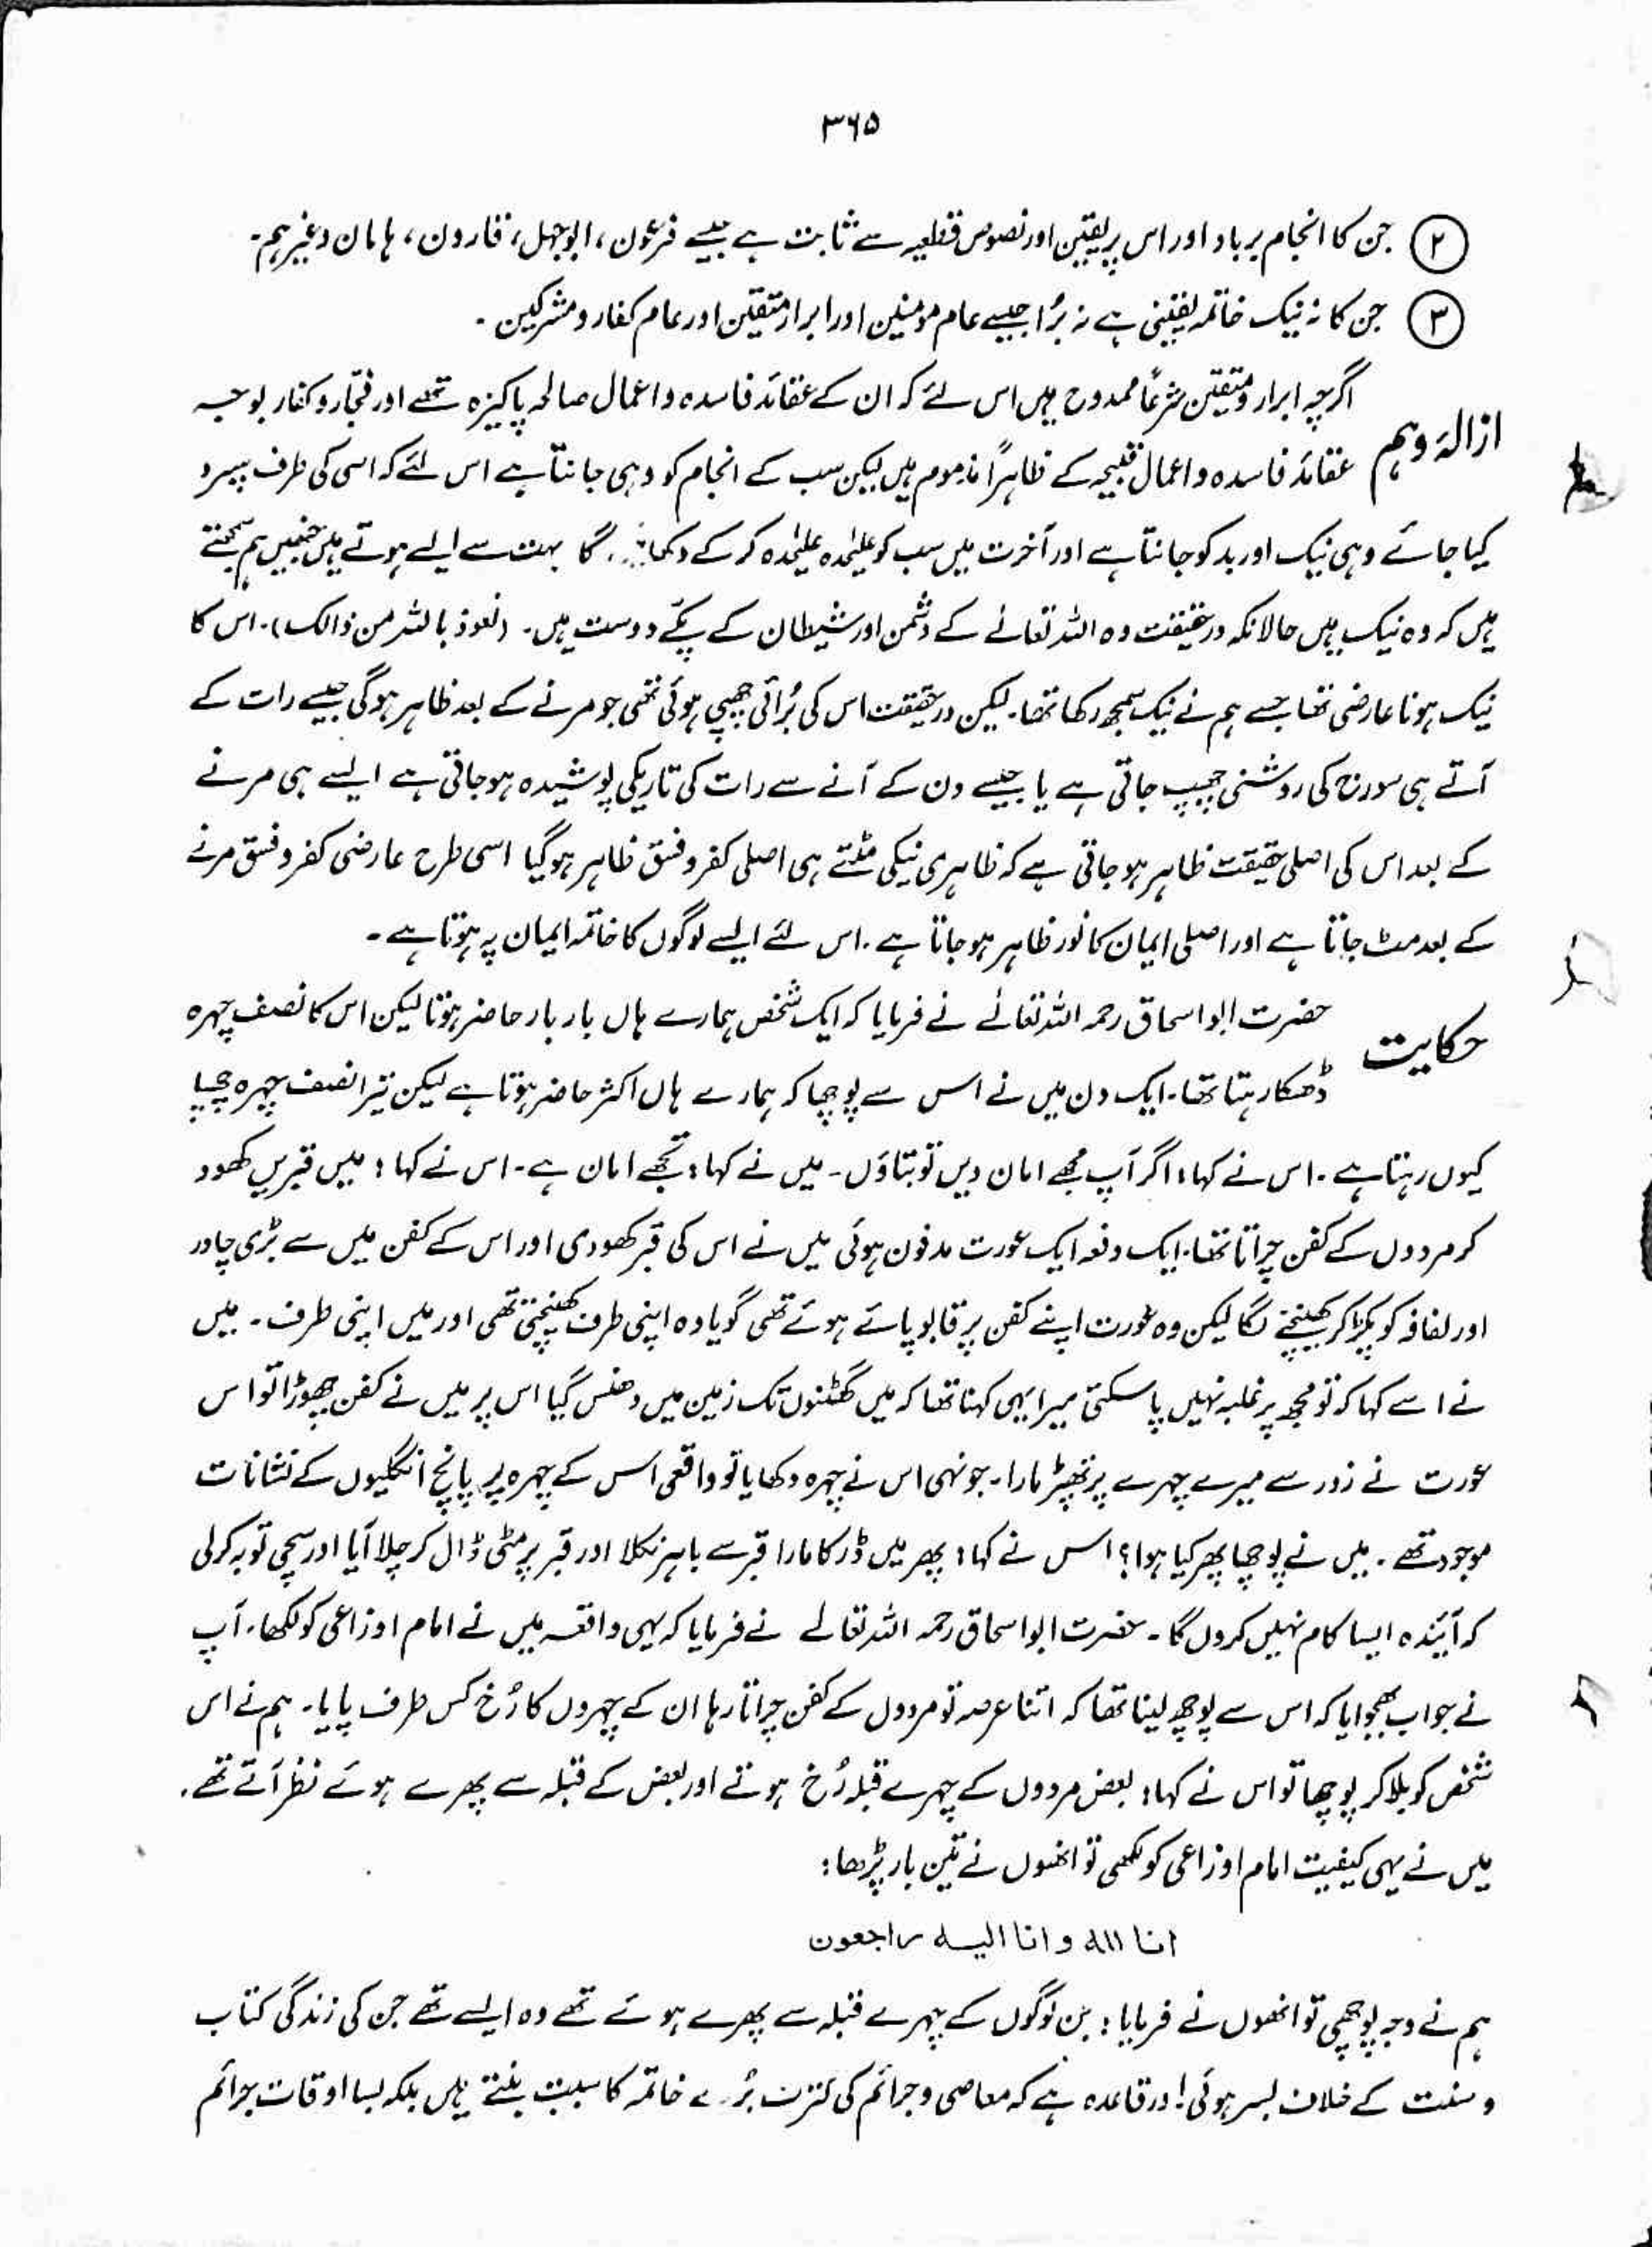 ۳۶۵
۲ جن کا انجام برباد اور اس پر یقین اور نصوص قطعیہ سے ثابت ہے جیسے فرعون، ابوجہل، قارون، ہامان وغیرہم۔
۳ جن کا نہ نیک خاتمہ یقینی ہے نہ بُرا جیسے عام مومنین اور ابرار متقین اور عام کفار و مشرکین۔
ازالۂ وہم اگرچہ ابرار و متقین شرعاً ممدوح ہیں اس لئے کہ ان کے عقائد فاسدہ و اعمال صالحہ پاکیزہ تھے اور فجّار و کفار بوجہ
عقائد فاسدہ و اعمال قبیحہ کے ظاہراً مذموم ہیں لیکن سب کے انجام کو وہی جانتا ہے اس لئے کہ اسی کی طرف سپرد
کیا جائے وہی نیک اور بد کو جانتا ہے اور آخرت میں سب کو علیٰحدہ علیٰحدہ کر کے گا بہت سے ایسے ہوتے ہیں جنہیں ہم سمجھتے
ہیں کہ وہ نیک ہیں حالانکہ درحقیقت وہ اللہ تعالےٰ کے دشمن اور شیطان کے پکّے دوست ہیں۔ (نعوذ باللہ من ذالک)۔ اس کا
نیک ہونا عارضی تھا جسے ہم نے نیک سمجھ رکھا تھا۔ لیکن درحقیقت اس کی بُرائی چھپی ہوئی تھی جو مرنے کے بعد ظاہر ہوگی جیسے رات کے
آتے ہی سورج کی روشنی چھپ جاتی ہے یا جیسے دن کے آنے سے رات کی تاریکی پوشیدہ ہو جاتی ہے ایسے ہی مرنے
کے بعد اس کی اصلی حقیقت ظاہر ہو جاتی ہے کہ ظاہری نیکی مٹتے ہی اصلی کفر و فسق ظاہر ہوگیا اسی طرح عارضی کفر و فسق مرنے
کے بعد مٹ جاتا ہے اور اصلی ایمان کا نور ظاہر ہو جاتا ہے۔ اس لئے ایسے لوگوں کا خاتمہ ایمان پہ ہوتا ہے۔
حکایت حضرت ابو اسحاق رحمہ اللہ تعالےٰ نے فرمایا کہ ایک شخص ہمارے ہاں بار بار حاضر ہوتا لیکن اس کا نصف چہرہ
ڈھکا رہتا تھا۔ ایک دن میں نے اس سے پوچھا کہ ہمارے ہاں اکثر حاضر ہوتا ہے لیکن تیرا نصف چہرہ چھپا
کیوں رہتا ہے۔ اس نے کہا: اگر آپ مجھے امان دیں تو بتاؤں۔ میں نے کہا: تجھے امان ہے۔ اس نے کہا: میں قبریں کھود
کر مردوں کے کفن چراتا تھا۔ ایک دفعہ ایک عورت مدفون ہوئی میں نے اس کی قبر کھودی اور اس کے کفن میں سے بڑی چادر
اور لفافہ کو پکڑ کر کھینچنے لگا لیکن وہ عورت اپنے کفن پر قابو پائے ہوئے تھی گویا وہ اپنی طرف کھینچتی تھی اور میں اپنی طرف۔ میں
نے اسے کہا کہ تو مجھ پر غلبہ نہیں پا سکتی میرا یہی کہنا تھا کہ میں گھٹنوں تک زمین میں دھنس گیا اس پر میں نے کفن چھوڑا تو اس
عورت نے زور سے میرے چہرے پر تھپڑ مارا۔ جونہی اس نے چہرہ دکھایا تو واقعی اس کے چہرہ پر پانچ انگلیوں کے نشانات
موجود تھے۔ میں نے پوچھا پھر کیا ہوا؟ اس نے کہا: پھر میں ڈر کا مارا قبر سے باہر نکلا اور قبر پر مٹی ڈال کر چلا آیا اور سچی توبہ کرلی
کہ آئندہ ایسا کام نہیں کروں گا۔ حضرت ابو اسحاق رحمہ اللہ تعالےٰ نے فرمایا کہ یہی واقعہ میں نے امام اوزاعی کو لکھا۔ آپ
نے جواب بھجوایا کہ اس سے پوچھ لینا تھا کہ اتنا عرصہ تو مردوں کے کفن چراتا رہا ان کے چہروں کا رُخ کس طرف پایا۔ ہم نے اس
شخص کو بلا کر پوچھا تو اس نے کہا: بعض مردوں کے چہرے قبلہ رُخ ہوتے اور بعض کے قبلہ سے پھرے ہوئے نظر آتے تھے۔
میں نے یہی کیفیت امام اوزاعی کو لکھی تو انھوں نے تین بار پڑھا:
انا لله و انا الیه راجعون
ہم نے وجہ پوچھی تو انھوں نے فرمایا: جن لوگوں کے چہرے قبلہ سے پھرے ہوئے تھے وہ ایسے تھے جن کی زندگی کتاب
و سنت کے خلاف بسر ہوئی! اور قاعدہ ہے کہ معاصی و جرائم کی کثرت بُرے خاتمہ کا سبب بنتے ہیں بلکہ بسا اوقات جرائم